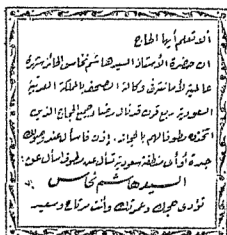 ألا تعلم أيها الحاج
ان حضرة الأستاذ السيد هاشم نحاس الحائز شهرة
عالمية لأمانته فى وكالة الصحف بالمملكة العربية
السعودية ربع قرن قد نال رضا جميع الحجاج الذين
اتخذوه مطوفا لهم بالحجاز. إذن فاسأل عند وصولك
جدة أو أى منطقة سعودية تسأل عند مطوفك اسأل عن:
السيد هاشم نحاس
تؤدى حجك وعمرتك وأنت مرتاح وسعيد